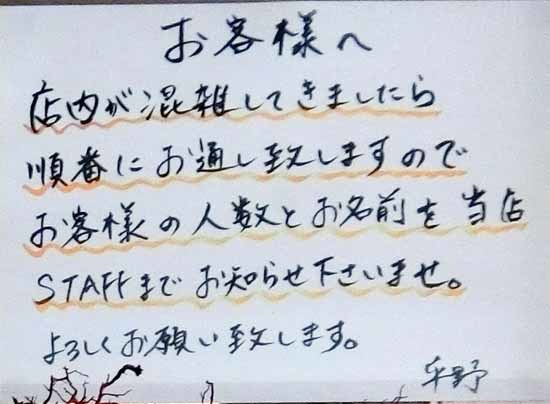 お客様へ
店内が混雑してきましたら
順番にお通し致しますので
お客様の人数とお名前を当店
STAFFまでお知らせ下さいませ。
よろしくお願い致します。
平野